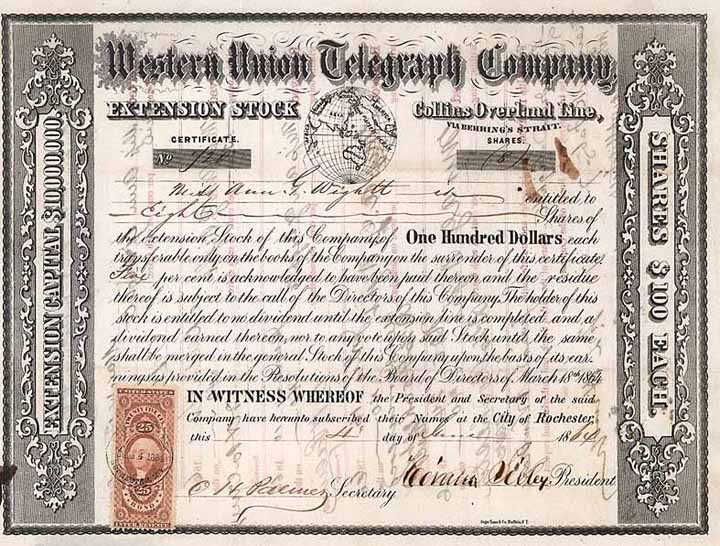 Western Union Telegraph Company,
EXTENSION STOCK
Collins Overland Line,
VIA BEHRING'S STRAIT.
CERTIFICATE.
SHARES.
No
8
Ann G. Wightt is entitled to
Eight Shares of
the Extension Stock of this Company, of One Hundred Dollars each
transferable only on the books of the Company on the surrender of this certificate.
Five per cent is acknowledged to have been paid thereon and the residue
thereof is subject to the call of the Directors of this Company. The holder of this
stock is entitled to no dividend until the extension line is completed and a
dividend earned thereon, nor to any vote upon said Stock until the same
shall be merged in the general Stock of this Company upon the basis of its ear-
nings as provided in the Resolutions of the Board of Directors of March 18th 1864
IN WITNESS WHEREOF the President and Secretary of the said
Company have hereunto subscribed their Names at the City of Rochester,
this 4 day of June 1864
Secretary
Hiram Sibley President
EXTENSION CAPITAL, $10,000,000.
SHARES $100 EACH.
25
25